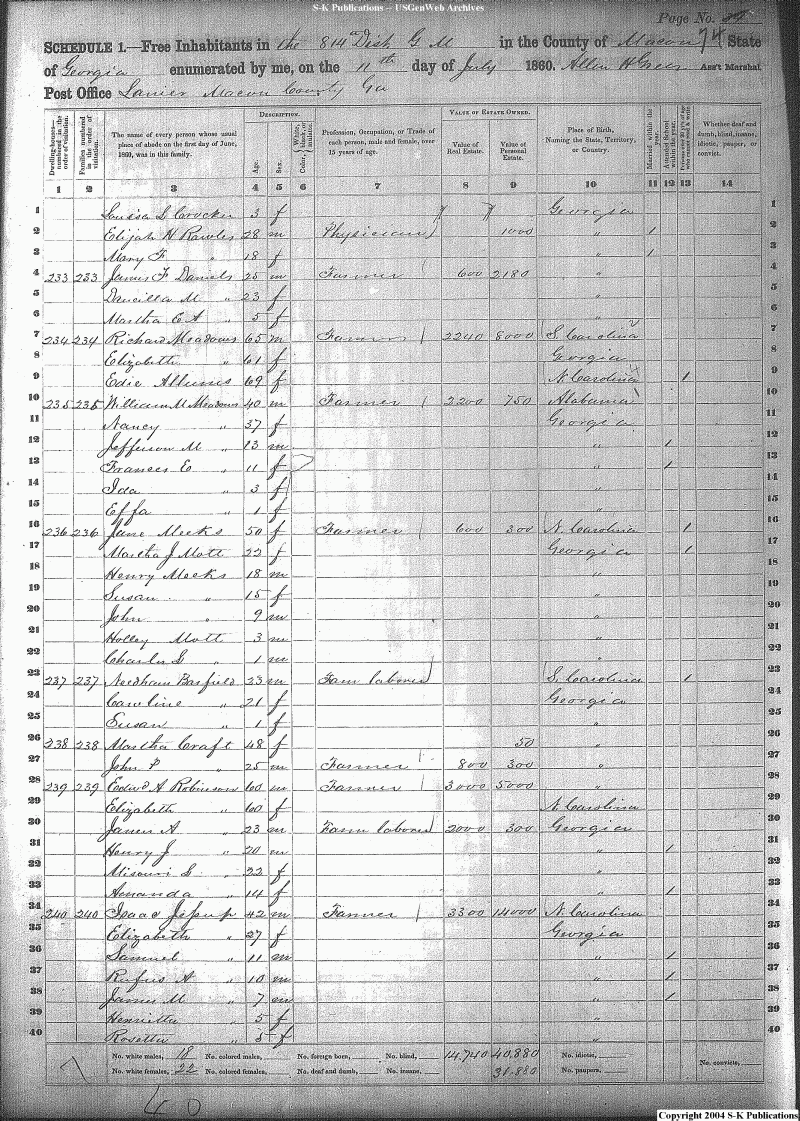 S-K Publications -- USGenWeb Archives
Page No. 74
SCHEDULE 1.—Free Inhabitants in the 814th Dist G M in the County of Macon State
of Georgia enumerated by me, on the 11th day of July 1860. Allen H Greer Ass't Marshal
Post Office Lanier Macon County Ga
Dwelling-houses—numbered in the order of visitation.
Families numbered in the order of visitation.
The name of every person whose usual place of abode on the first day of June, 1860, was in this family.
DESCRIPTION.
Age.
Sex.
Color, White, black, or mulatto.
Profession, Occupation, or Trade of each person, male and female, over 15 years of age.
VALUE OF ESTATE OWNED.
Value of Real Estate.
Value of Personal Estate.
Place of Birth, Naming the State, Territory, or Country.
Married within the year.
Attended School within the year.
Persons over 20 y'rs of age who cannot read & write.
Whether deaf and dumb, blind, insane, idiotic, pauper, or convict.
1 2 3 4 5 6 7 8 9 10 11 12 13 14
1 Louisa L Crocker 3 f Georgia 1
2 Elijah H Rawles 28 m Physician 1000 " / 2
3 Mary F " 18 f " / 3
4 233 233 James F Daniels 25 m Farmer 600 2180 " 4
5 Daucilla M " 23 f " 5
6 Martha E A " 5 f " 6
7 234 234 Richard Meadows 65 m Farmer 2240 8000 S. Carolina 7
8 Elizabeth " 61 f Georgia 8
9 Edie Allums 69 f N. Carolina / 9
10 235 235 William M Meadows 40 m Farmer 2200 750 Alabama 10
11 Nancy " 37 f Georgia 11
12 Jefferson M " 13 m " / 12
13 Frances E " 11 f " / 13
14 Ida " 3 f " 14
15 Effa " 1 f " 15
16 236 236 Jane Meeks 50 f Farmer 600 300 N. Carolina / 16
17 Martha J Mott 22 f Georgia / 17
18 Henry Meeks 18 m " 18
19 Susan " 15 f " 19
20 John " 9 m " 20
21 Holley Mott 3 m " 21
22 Charles L " 1 m " 22
23 237 237 Needham Barfield 23 m Farm laborer S. Carolina / 23
24 Caroline " 21 f Georgia 24
25 Susan " 1 f " 25
26 238 238 Martha Craft 48 f 50 " 26
27 John P " 25 m Farmer 800 300 " 27
28 239 239 Edwd A Robinson 60 m Farmer 3000 5000 " 28
29 Elizabeth " 60 f N. Carolina 29
30 James A " 23 m Farm laborer 2000 300 Georgia 30
31 Henry J " 20 m " / 31
32 Missouri L " 22 f " 32
33 Amanda " 14 f " / 33
34 240 240 Isaac Jessup 42 m Farmer 3300 14000 N. Carolina 34
35 Elizabeth " 27 f Georgia 35
36 Samuel " 11 m " / 36
37 Rufus A " 10 m " / 37
38 James M " 7 m " / 38
39 Henrietta " 5 f " 39
40 Rosetta " 5 f " 40
No. white males, 18 No. colored males, No. foreign born, No. blind, 14,740 40,880 No. idiotic,
No. white females, 22 No. colored females, No. deaf and dumb, No. insane, 31,880 No. paupers, No. convicts,
40
Copyright 2004 S-K Publications